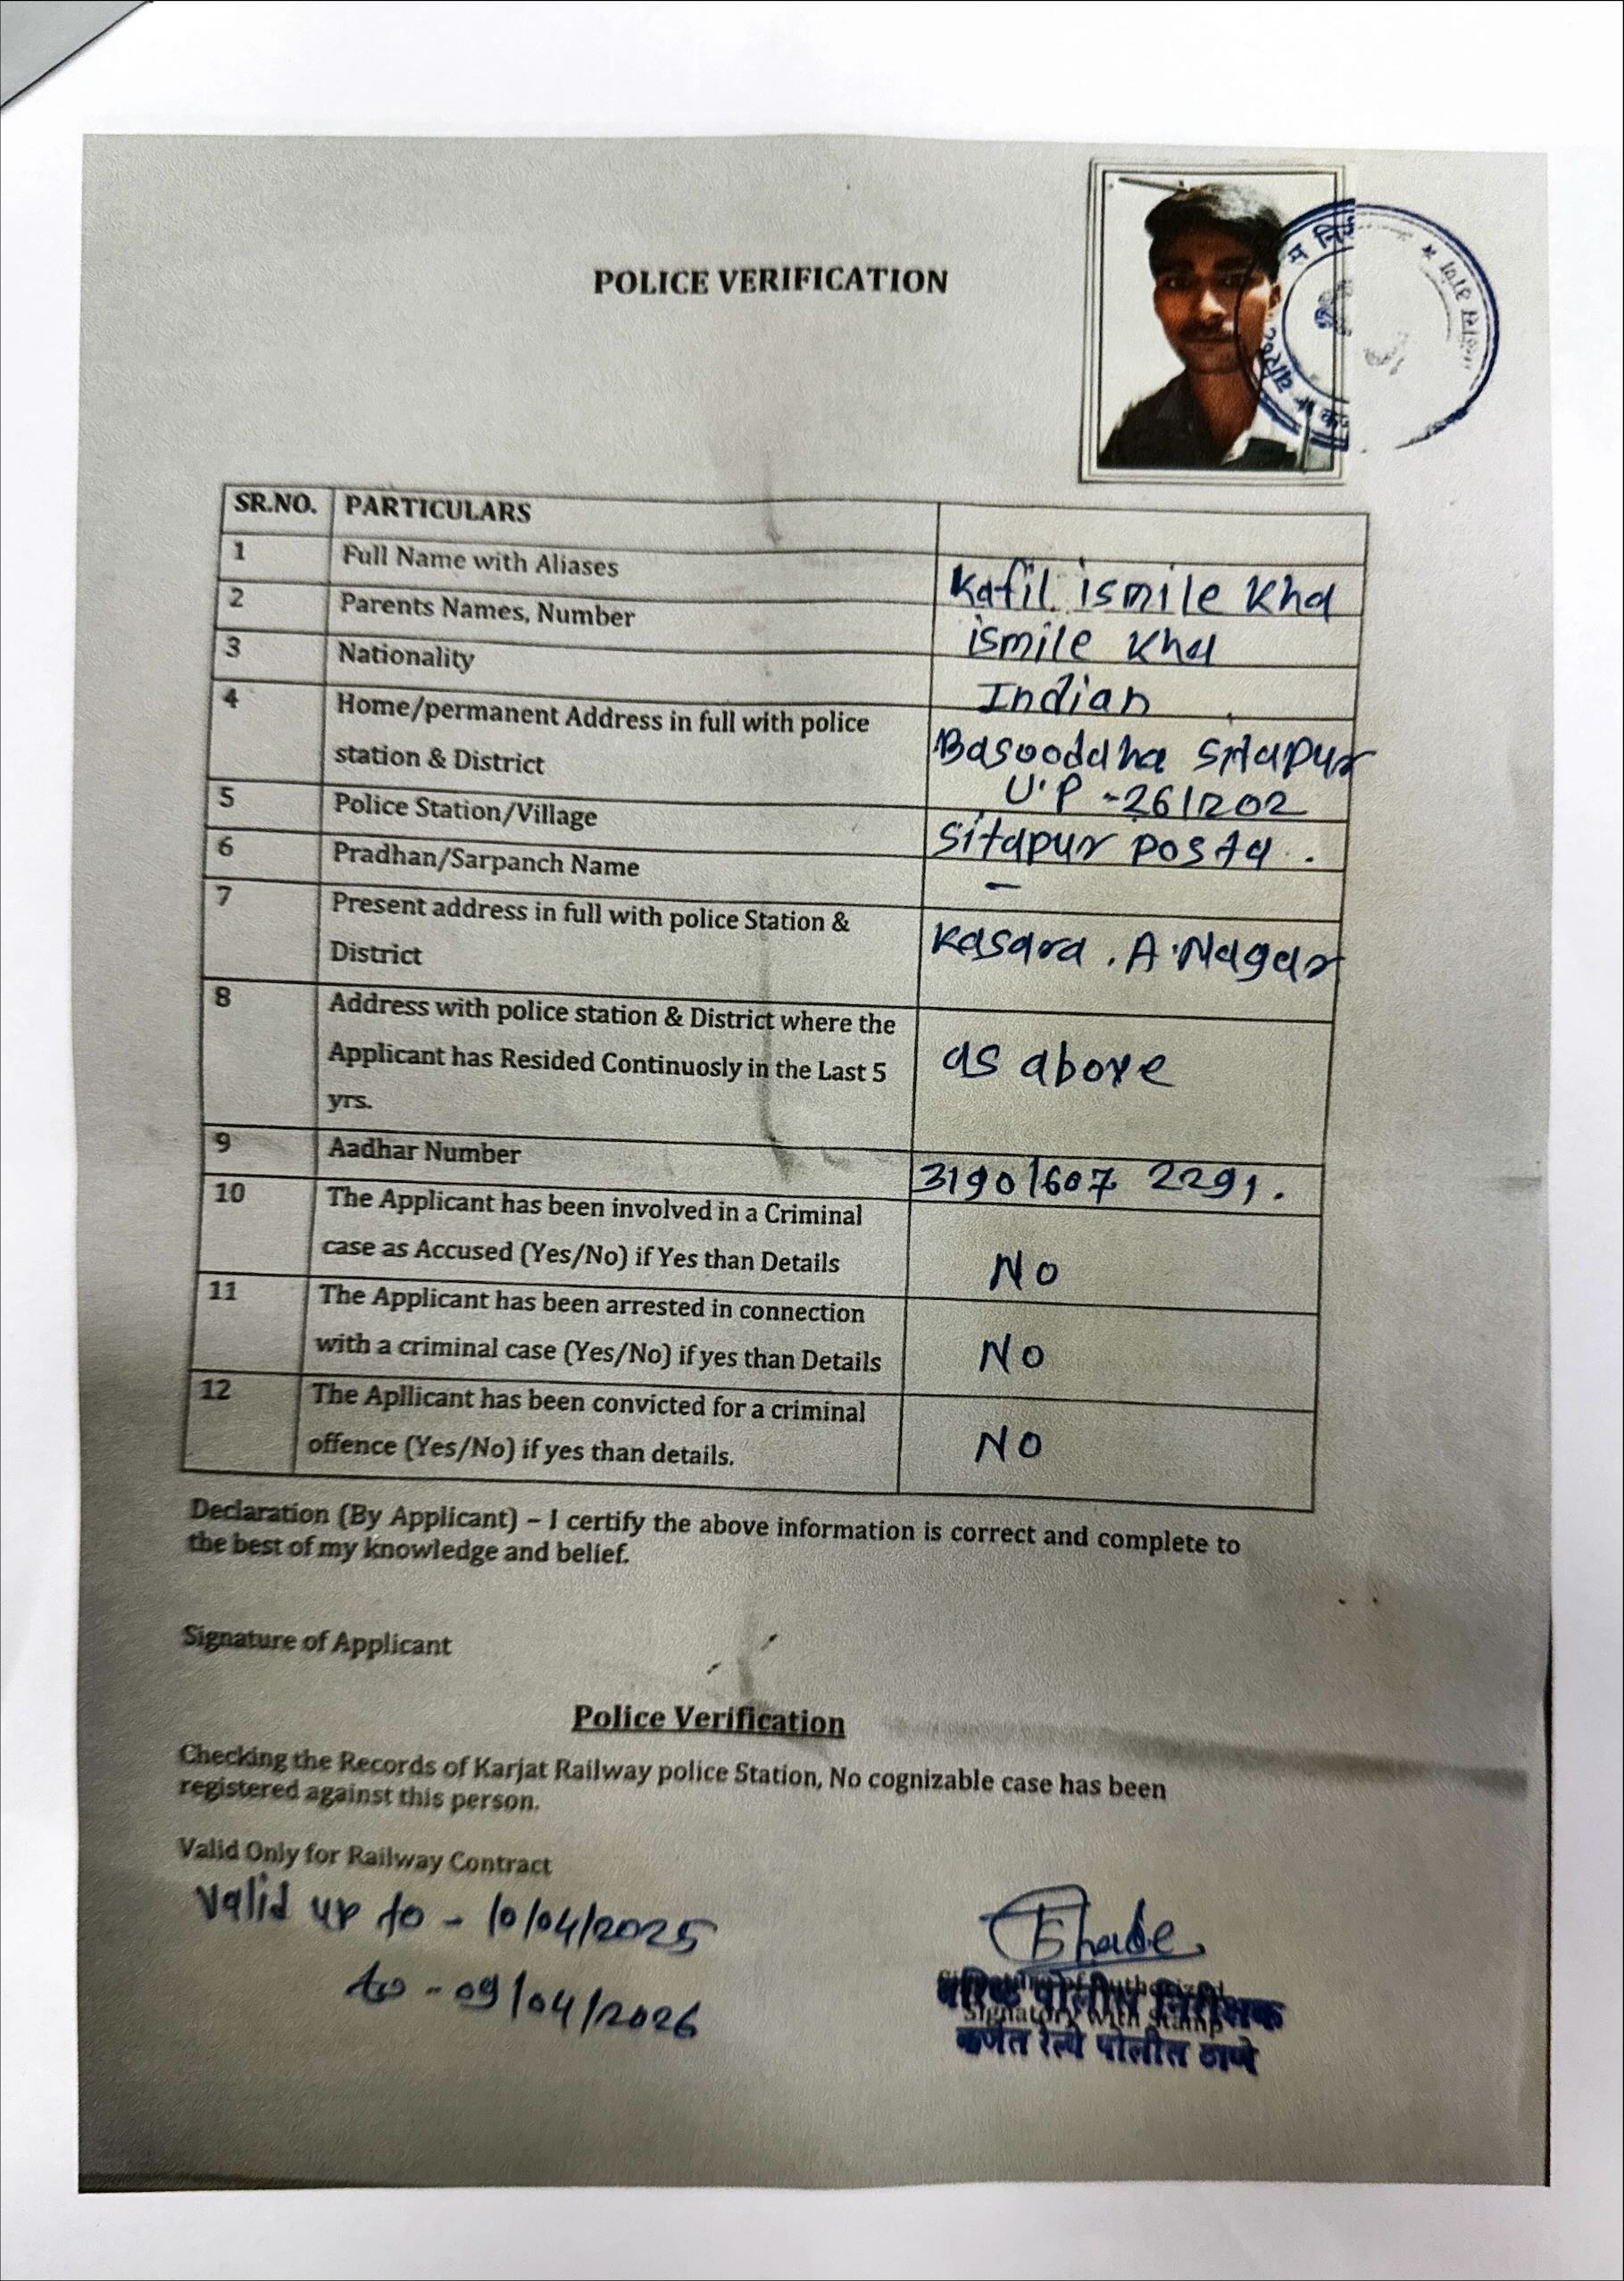 POLICE VERIFICATION
SR.NO. PARTICULARS
1 Full Name with Aliases Kafil ismile Khd
2 Parents Names, Number ismile Khd
3 Nationality Indian
4 Home/permanent Address in full with police Basooddha Sitapur
station & District U.P - 261202
5 Police Station/Village Sitapur Posta .
6 Pradhan/Sarpanch Name -
7 Present address in full with police Station & Kasara . A.Nagar
District
8 Address with police station & District where the
Applicant has Resided Continuosly in the Last 5 as above
yrs.
9 Aadhar Number 31901607 2291.
10 The Applicant has been involved in a Criminal
case as Accused (Yes/No) if Yes than Details No
11 The Applicant has been arrested in connection
with a criminal case (Yes/No) if yes than Details No
12 The Apllicant has been convicted for a criminal
offence (Yes/No) if yes than details. NO
Declaration (By Applicant) – I certify the above information is correct and complete to
the best of my knowledge and belief.
Signature of Applicant
Police Verification
Checking the Records of Karjat Railway police Station, No cognizable case has been
registered against this person.
Valid Only for Railway Contract
Valid up to - 10/04/2025
to - 09/04/2026
Signatory with Stamp
वरिष्ठ पोलीस निरीक्षक
कर्जत रेल्वे पोलीस ठाणे